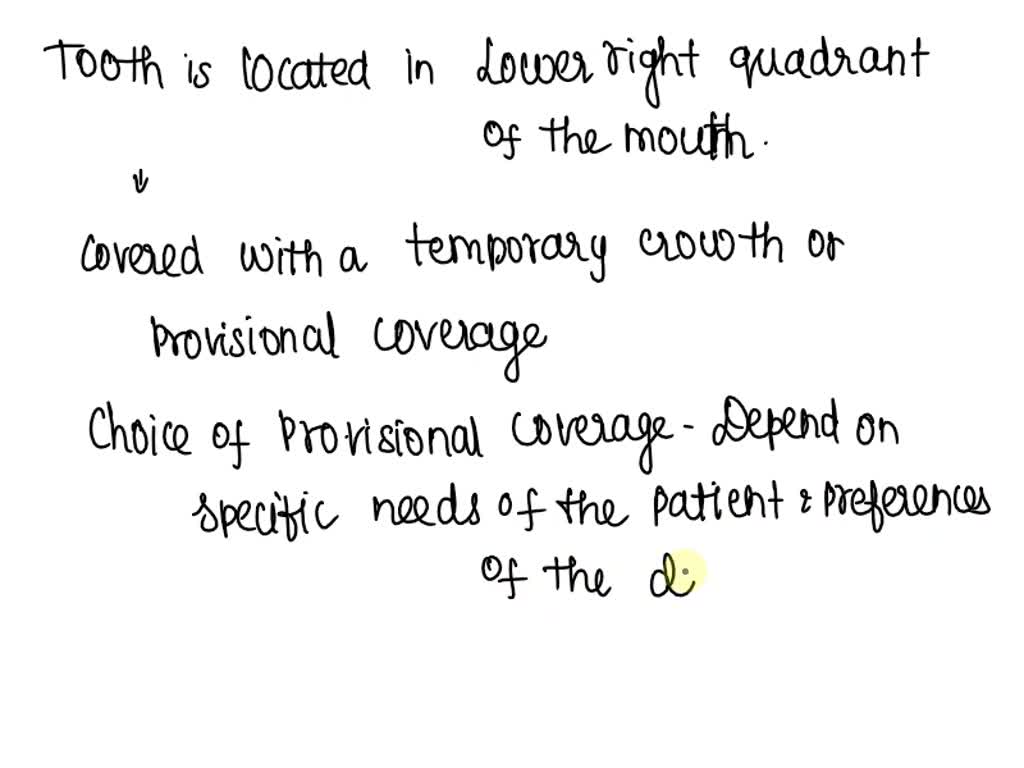 Tooth is located in Lower right quadrant
of the mouth.
↓
covered with a temporary crowth or
provisional coverage
Choice of provisional coverage - Depend on
specific needs of the patient & preferences
of the di